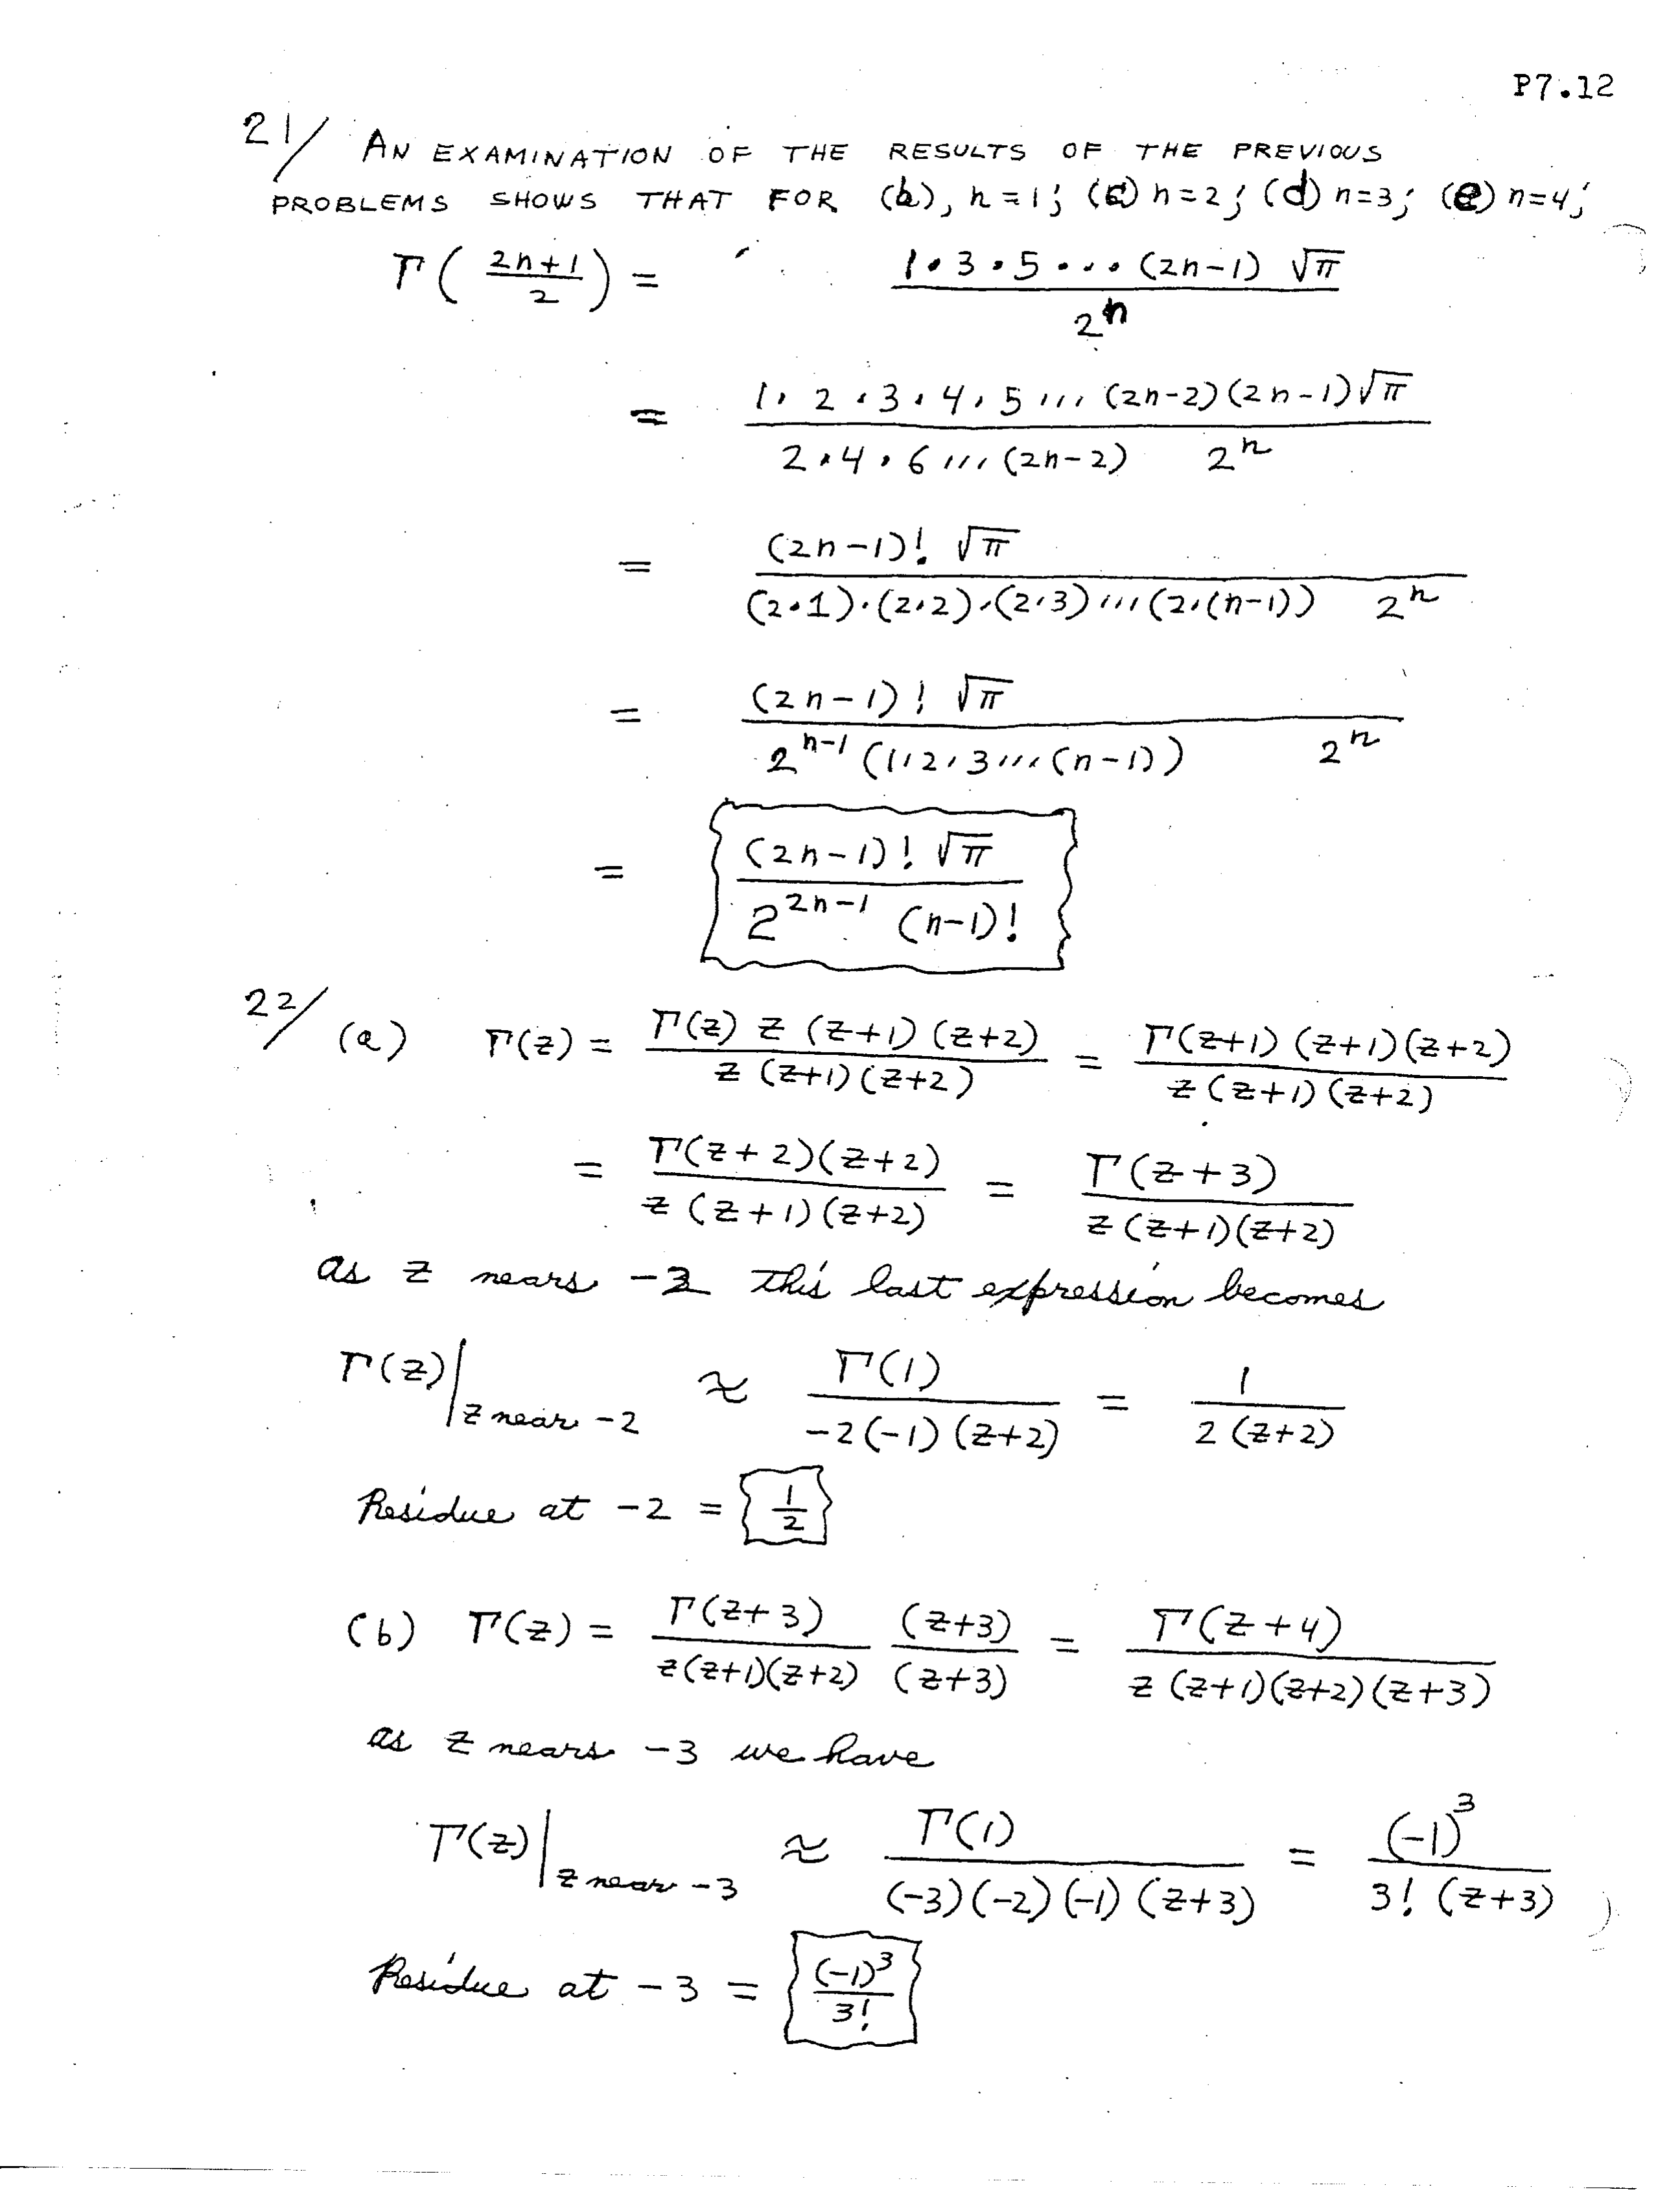 P7.12
21/ AN EXAMINATION OF THE RESULTS OF THE PREVIOUS
PROBLEMS SHOWS THAT FOR (b), n=1; (c) n=2; (d) n=3; (e) n=4;
Γ((2n+1)/2) = (1·3·5···(2n-1) √π) / 2^n
= (1·2·3·4·5···(2n-2)(2n-1)√π) / (2·4·6···(2n-2) 2^n)
= ((2n-1)! √π) / ((2·1)·(2·2)·(2·3)···(2·(n-1)) 2^n)
= ((2n-1)! √π) / (2^(n-1) (1·2·3···(n-1)) 2^n)
= ((2n-1)! √π) / (2^(2n-1) (n-1)!)
22/ (a) Γ(z) = (Γ(z) z (z+1) (z+2)) / (z (z+1)(z+2)) = (Γ(z+1) (z+1)(z+2)) / (z (z+1)(z+2))
= (Γ(z+2)(z+2)) / (z (z+1)(z+2)) = Γ(z+3) / (z (z+1)(z+2))
as z nears -2 this last expression becomes
Γ(z)|z near -2 ≈ Γ(1) / (-2(-1)(z+2)) = 1 / (2 (z+2))
Residue at -2 = 1/2
(b) Γ(z) = Γ(z+3) / (z(z+1)(z+2)) (z+3)/(z+3) = Γ(z+4) / (z (z+1)(z+2)(z+3))
as z nears -3 we have
Γ(z)|z near -3 ≈ Γ(1) / ((-3)(-2)(-1)(z+3)) = (-1)^3 / (3! (z+3))
Residue at -3 = (-1)^3 / 3!